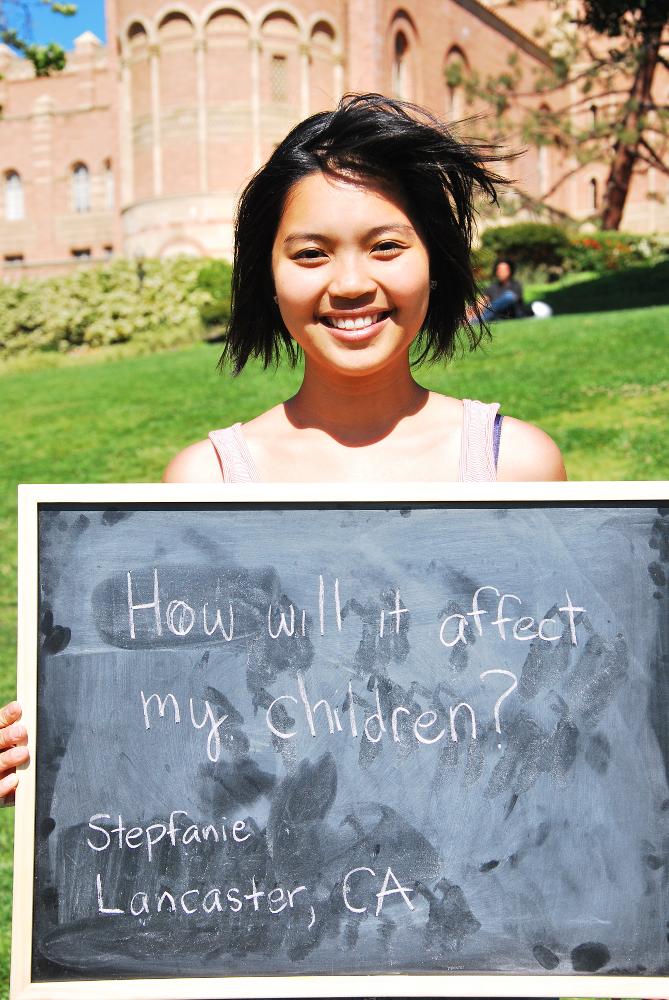 How will it affect
my children?
Stepfanie
Lancaster, CA